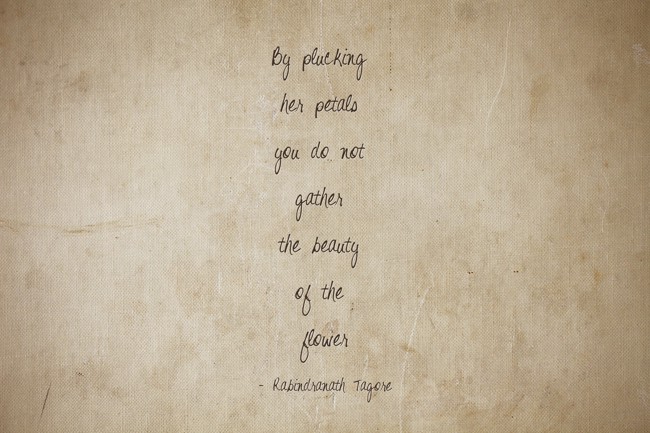 By plucking
her petals
you do not
gather
the beauty
of the
flower
- Rabindranath Tagore